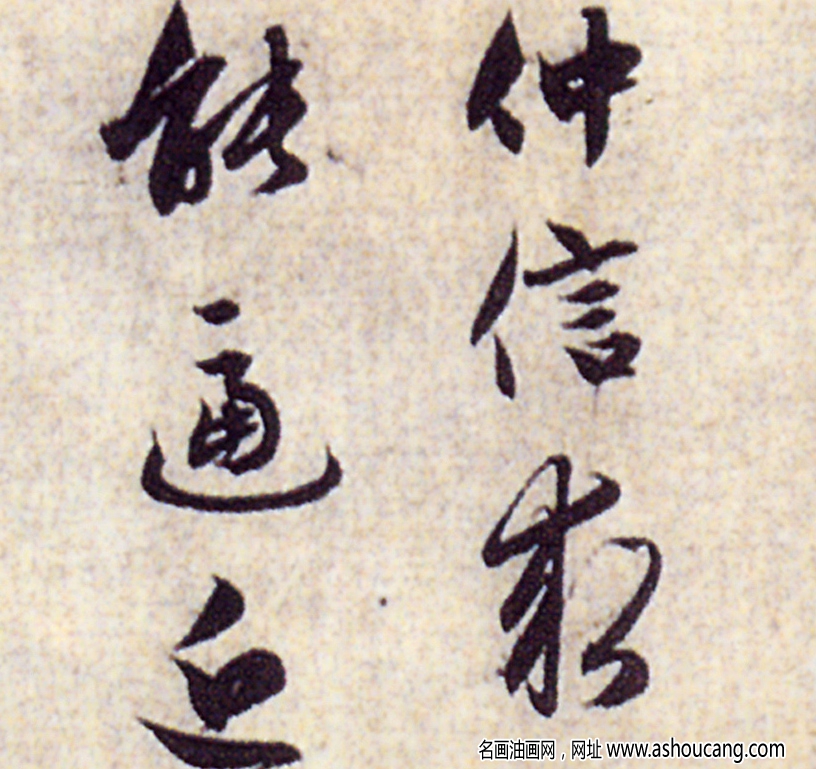 仲信
能逼近
名画油画网，网址 www.ashoucang.com